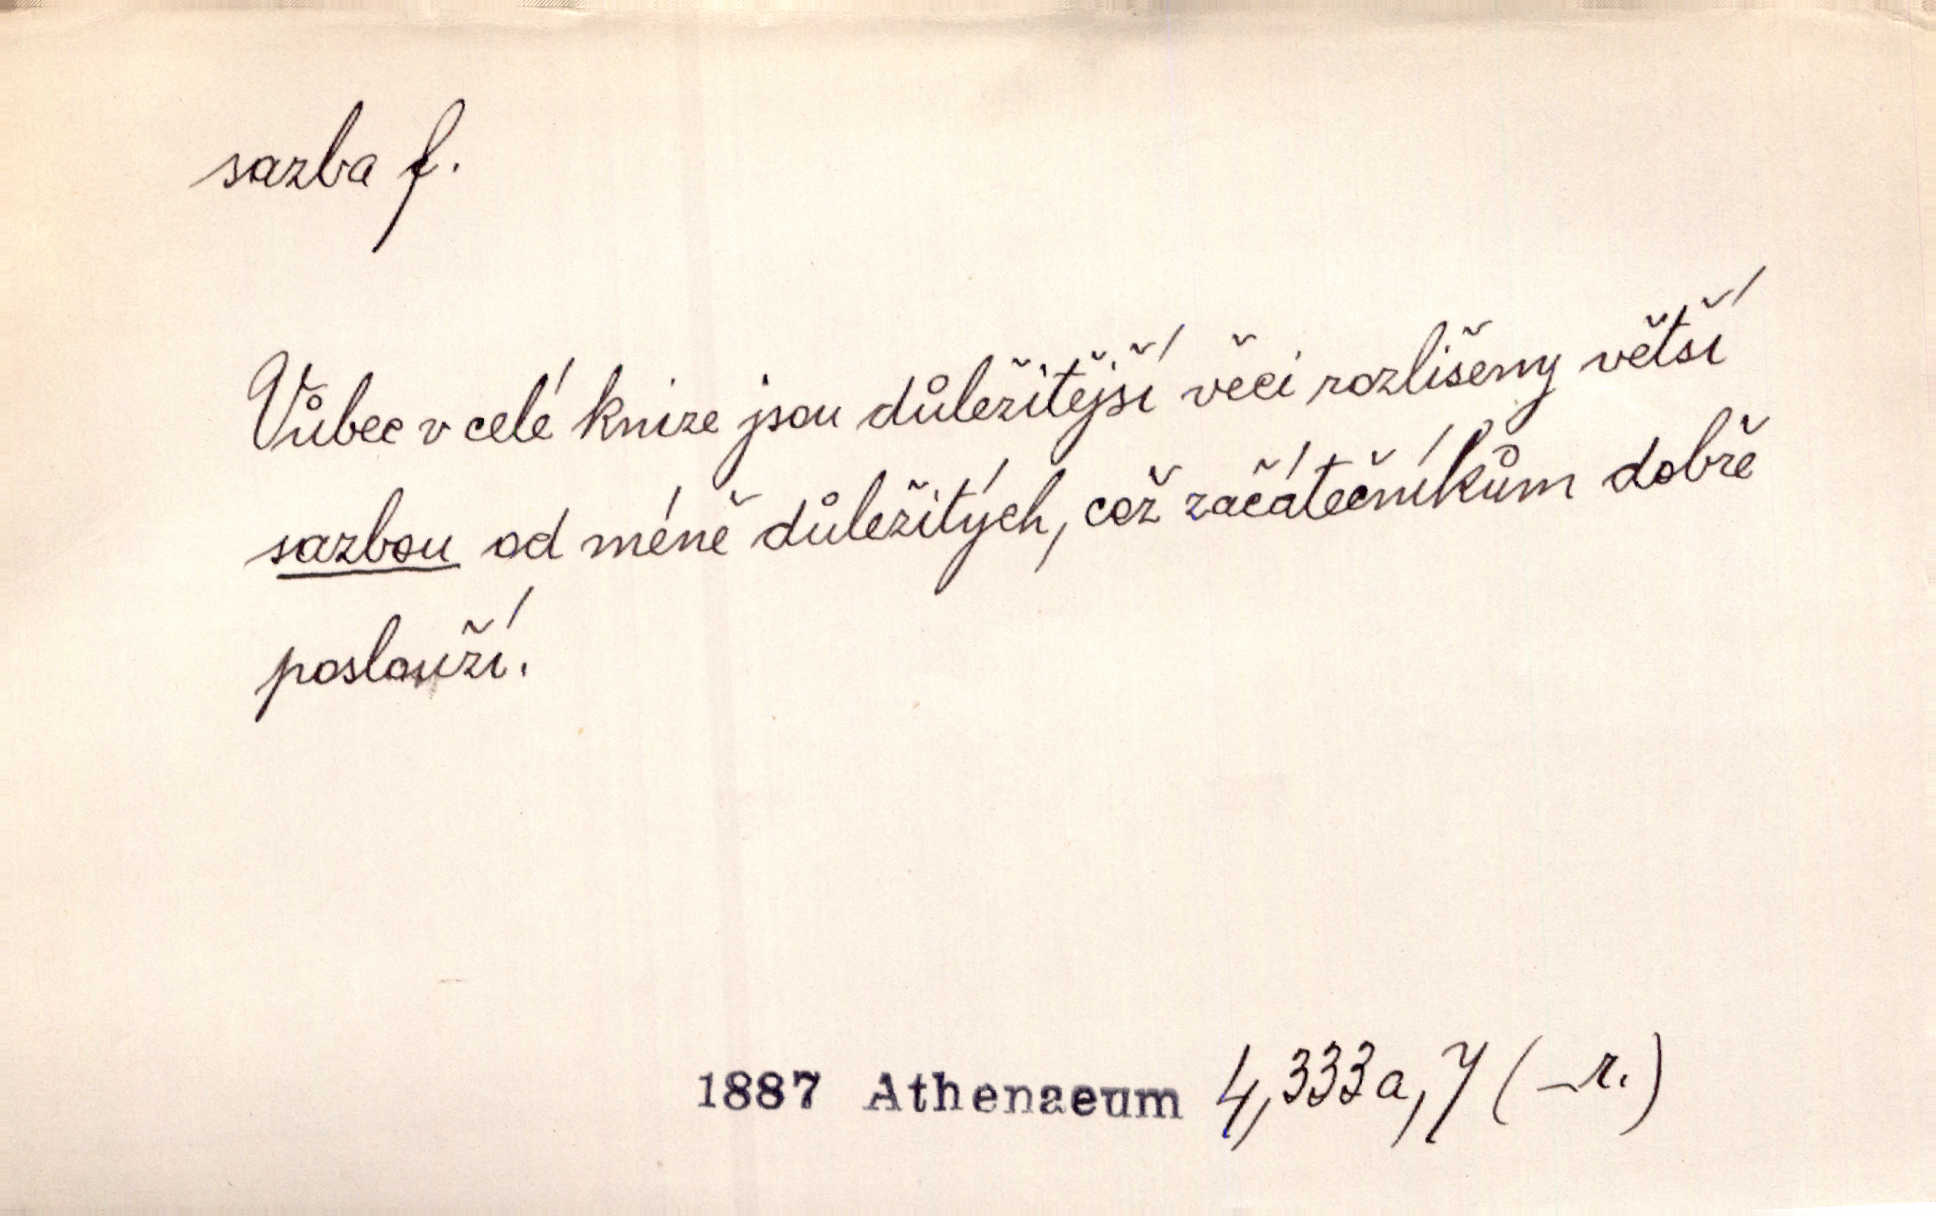 sazba f.
Vůbec v celé knize jsou důležitější věci rozlišeny větší
sazbou od méně důležitých, což začátečníkům dobře
poslouží.
1887 Athenaeum 4,333a,7 (_r.)